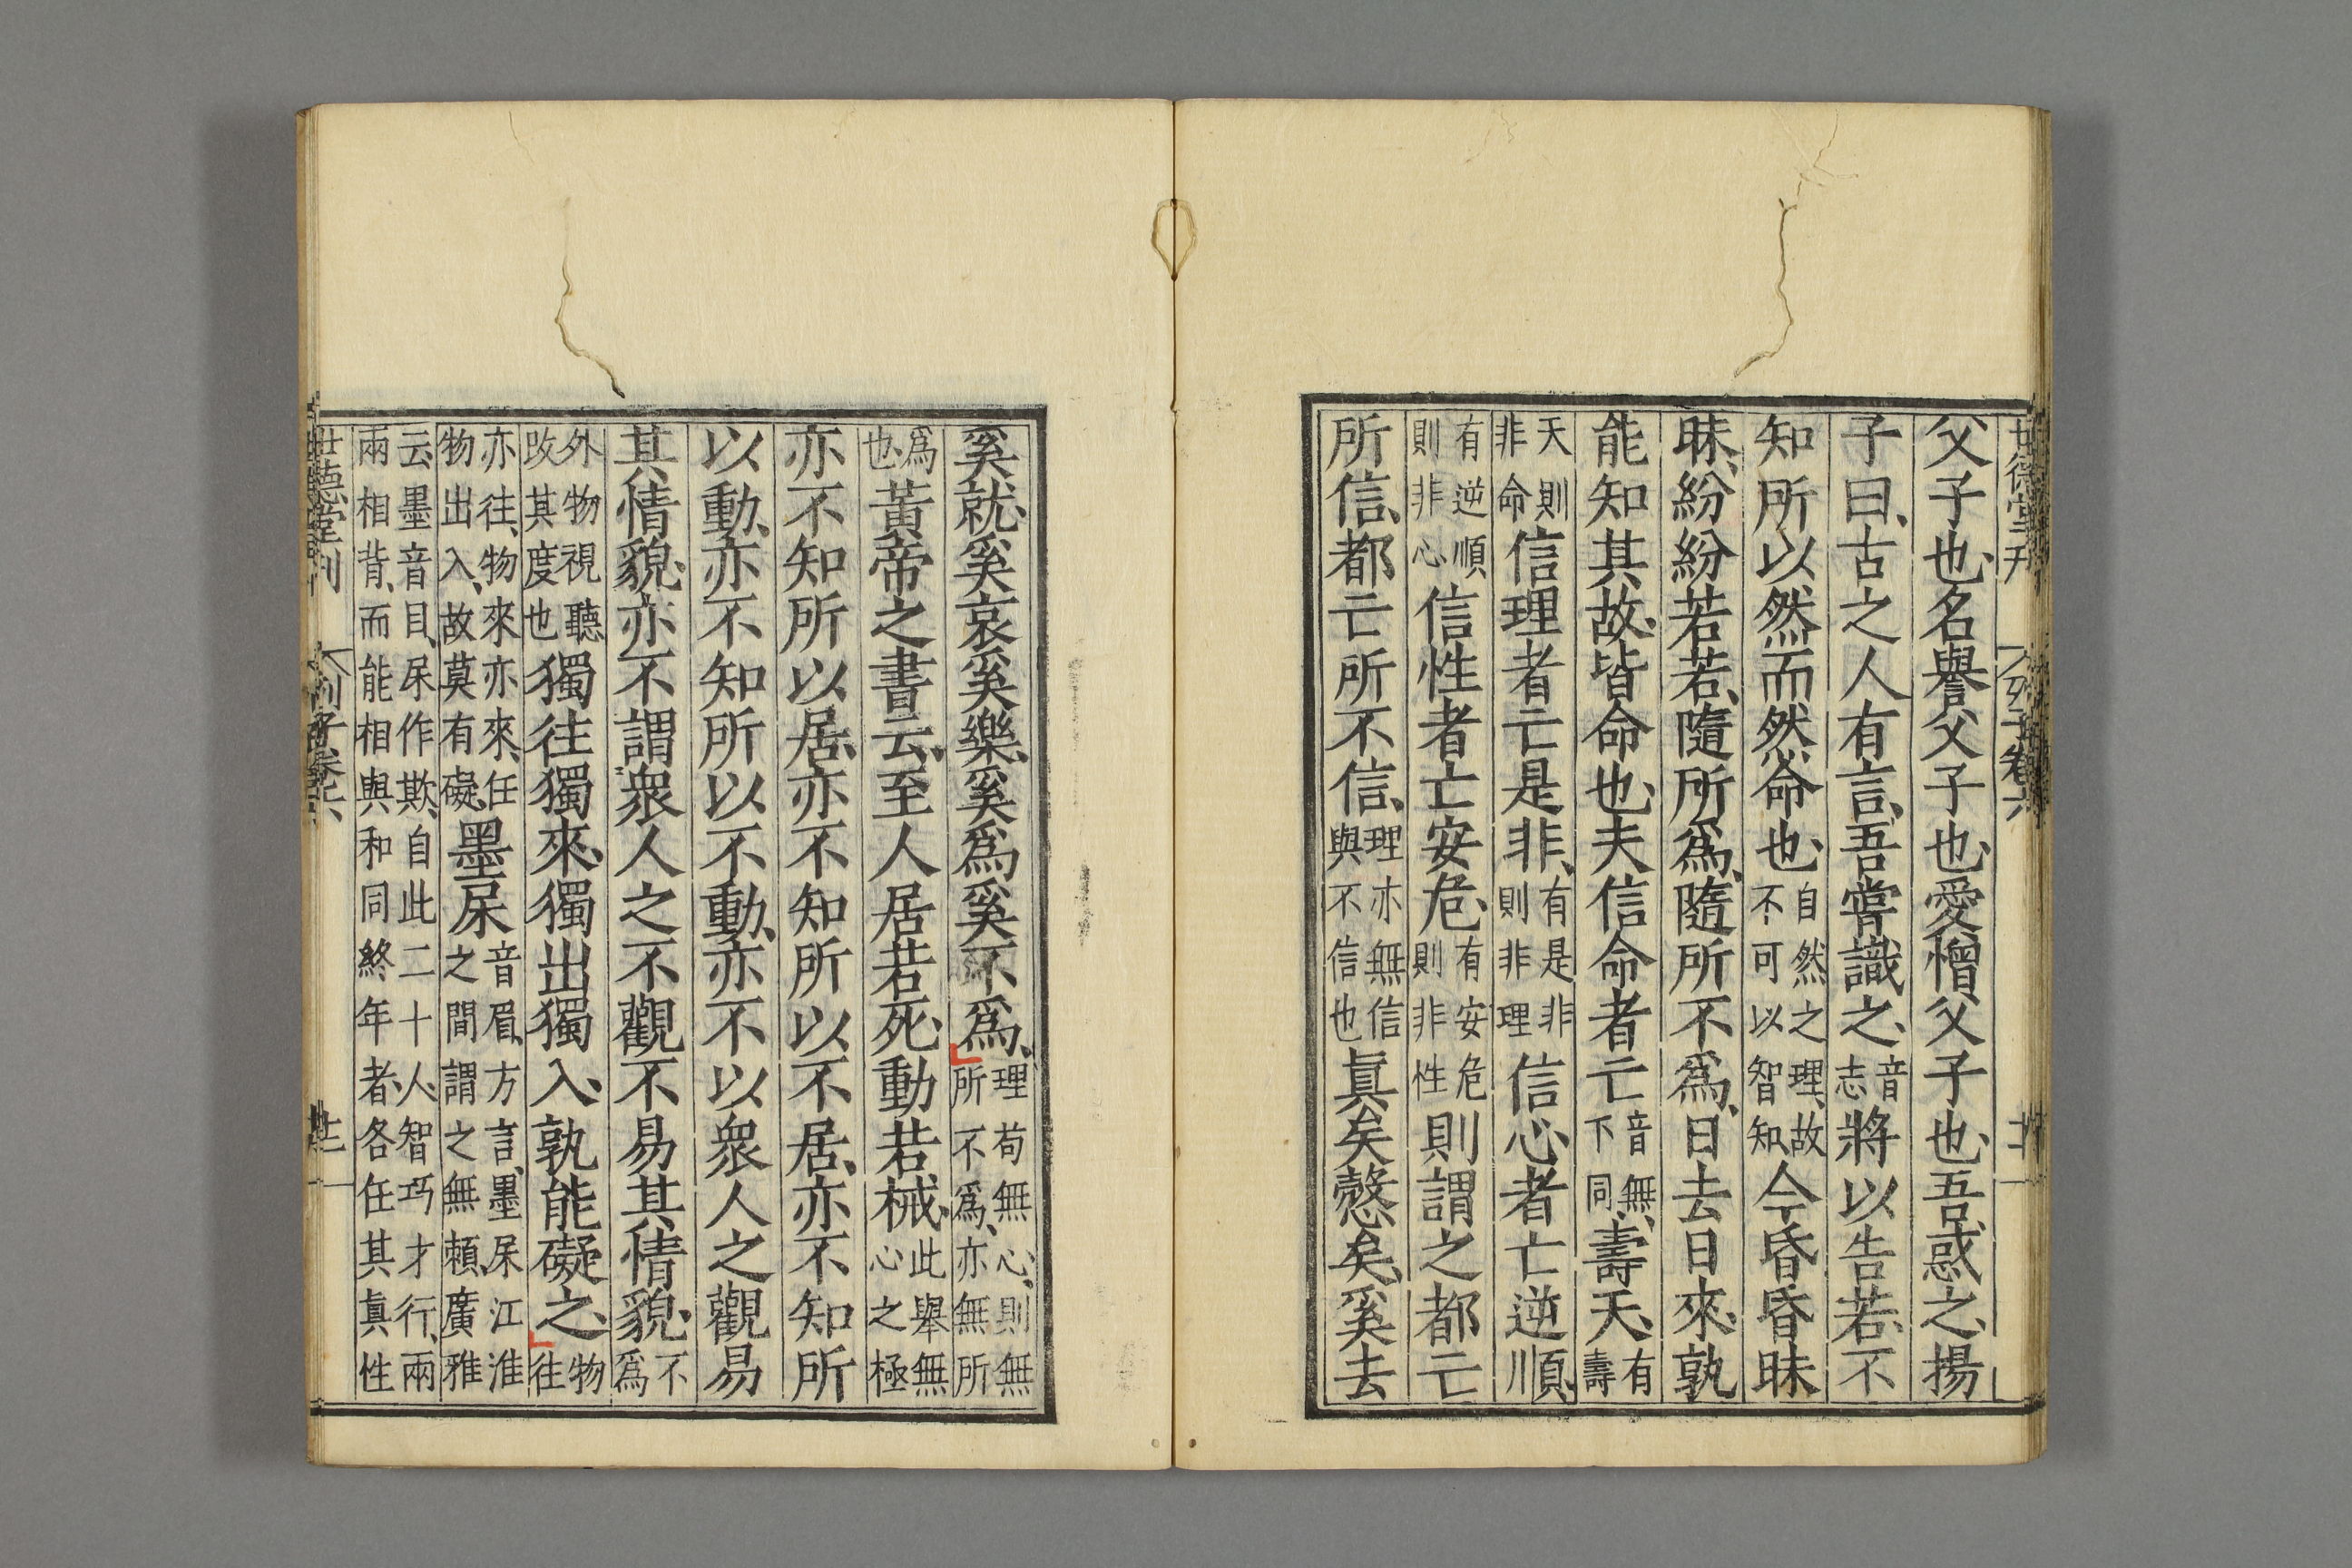 世德堂刊 列子卷六
父子也名譽父子也愛憎父子也吾惑之揚
子曰古之人有言吾嘗識之音志將以告若不
知所以然而然命也自然之理故不可以智知今昏昏昧
昧紛紛若若隨所爲隨所不爲日去日來孰
能知其故皆命也夫信命者亡音無下同壽夭有壽
夭則非命信理者亡是非有是非則非理信心者亡逆順
有逆順則非心信性者亡安危有安危則非性則謂之都亡
所信都亡所不信理亦無信與不信也眞矣愨矣奚去
奚就奚哀奚樂奚爲奚不爲理苟無心則無所不爲亦無所
爲也黃帝之書云至人居若死動若械此舉無心之極
亦不知所以居亦不知所以不居亦不知所
以動亦不知所以不動亦不以衆人之觀易
其情貌亦不謂衆人之不觀不易其情貌不爲
外物視聽改其度也獨往獨來獨出獨入孰能礙之物往
亦往物來亦來任物出入故莫有礙墨杘音眉方言墨杘江淮之間謂之無賴廣雅
云墨音目杘作欺自此二十人智巧才行兩兩相背而能相與和同終年者各任其眞性
世德堂刊 列子卷六